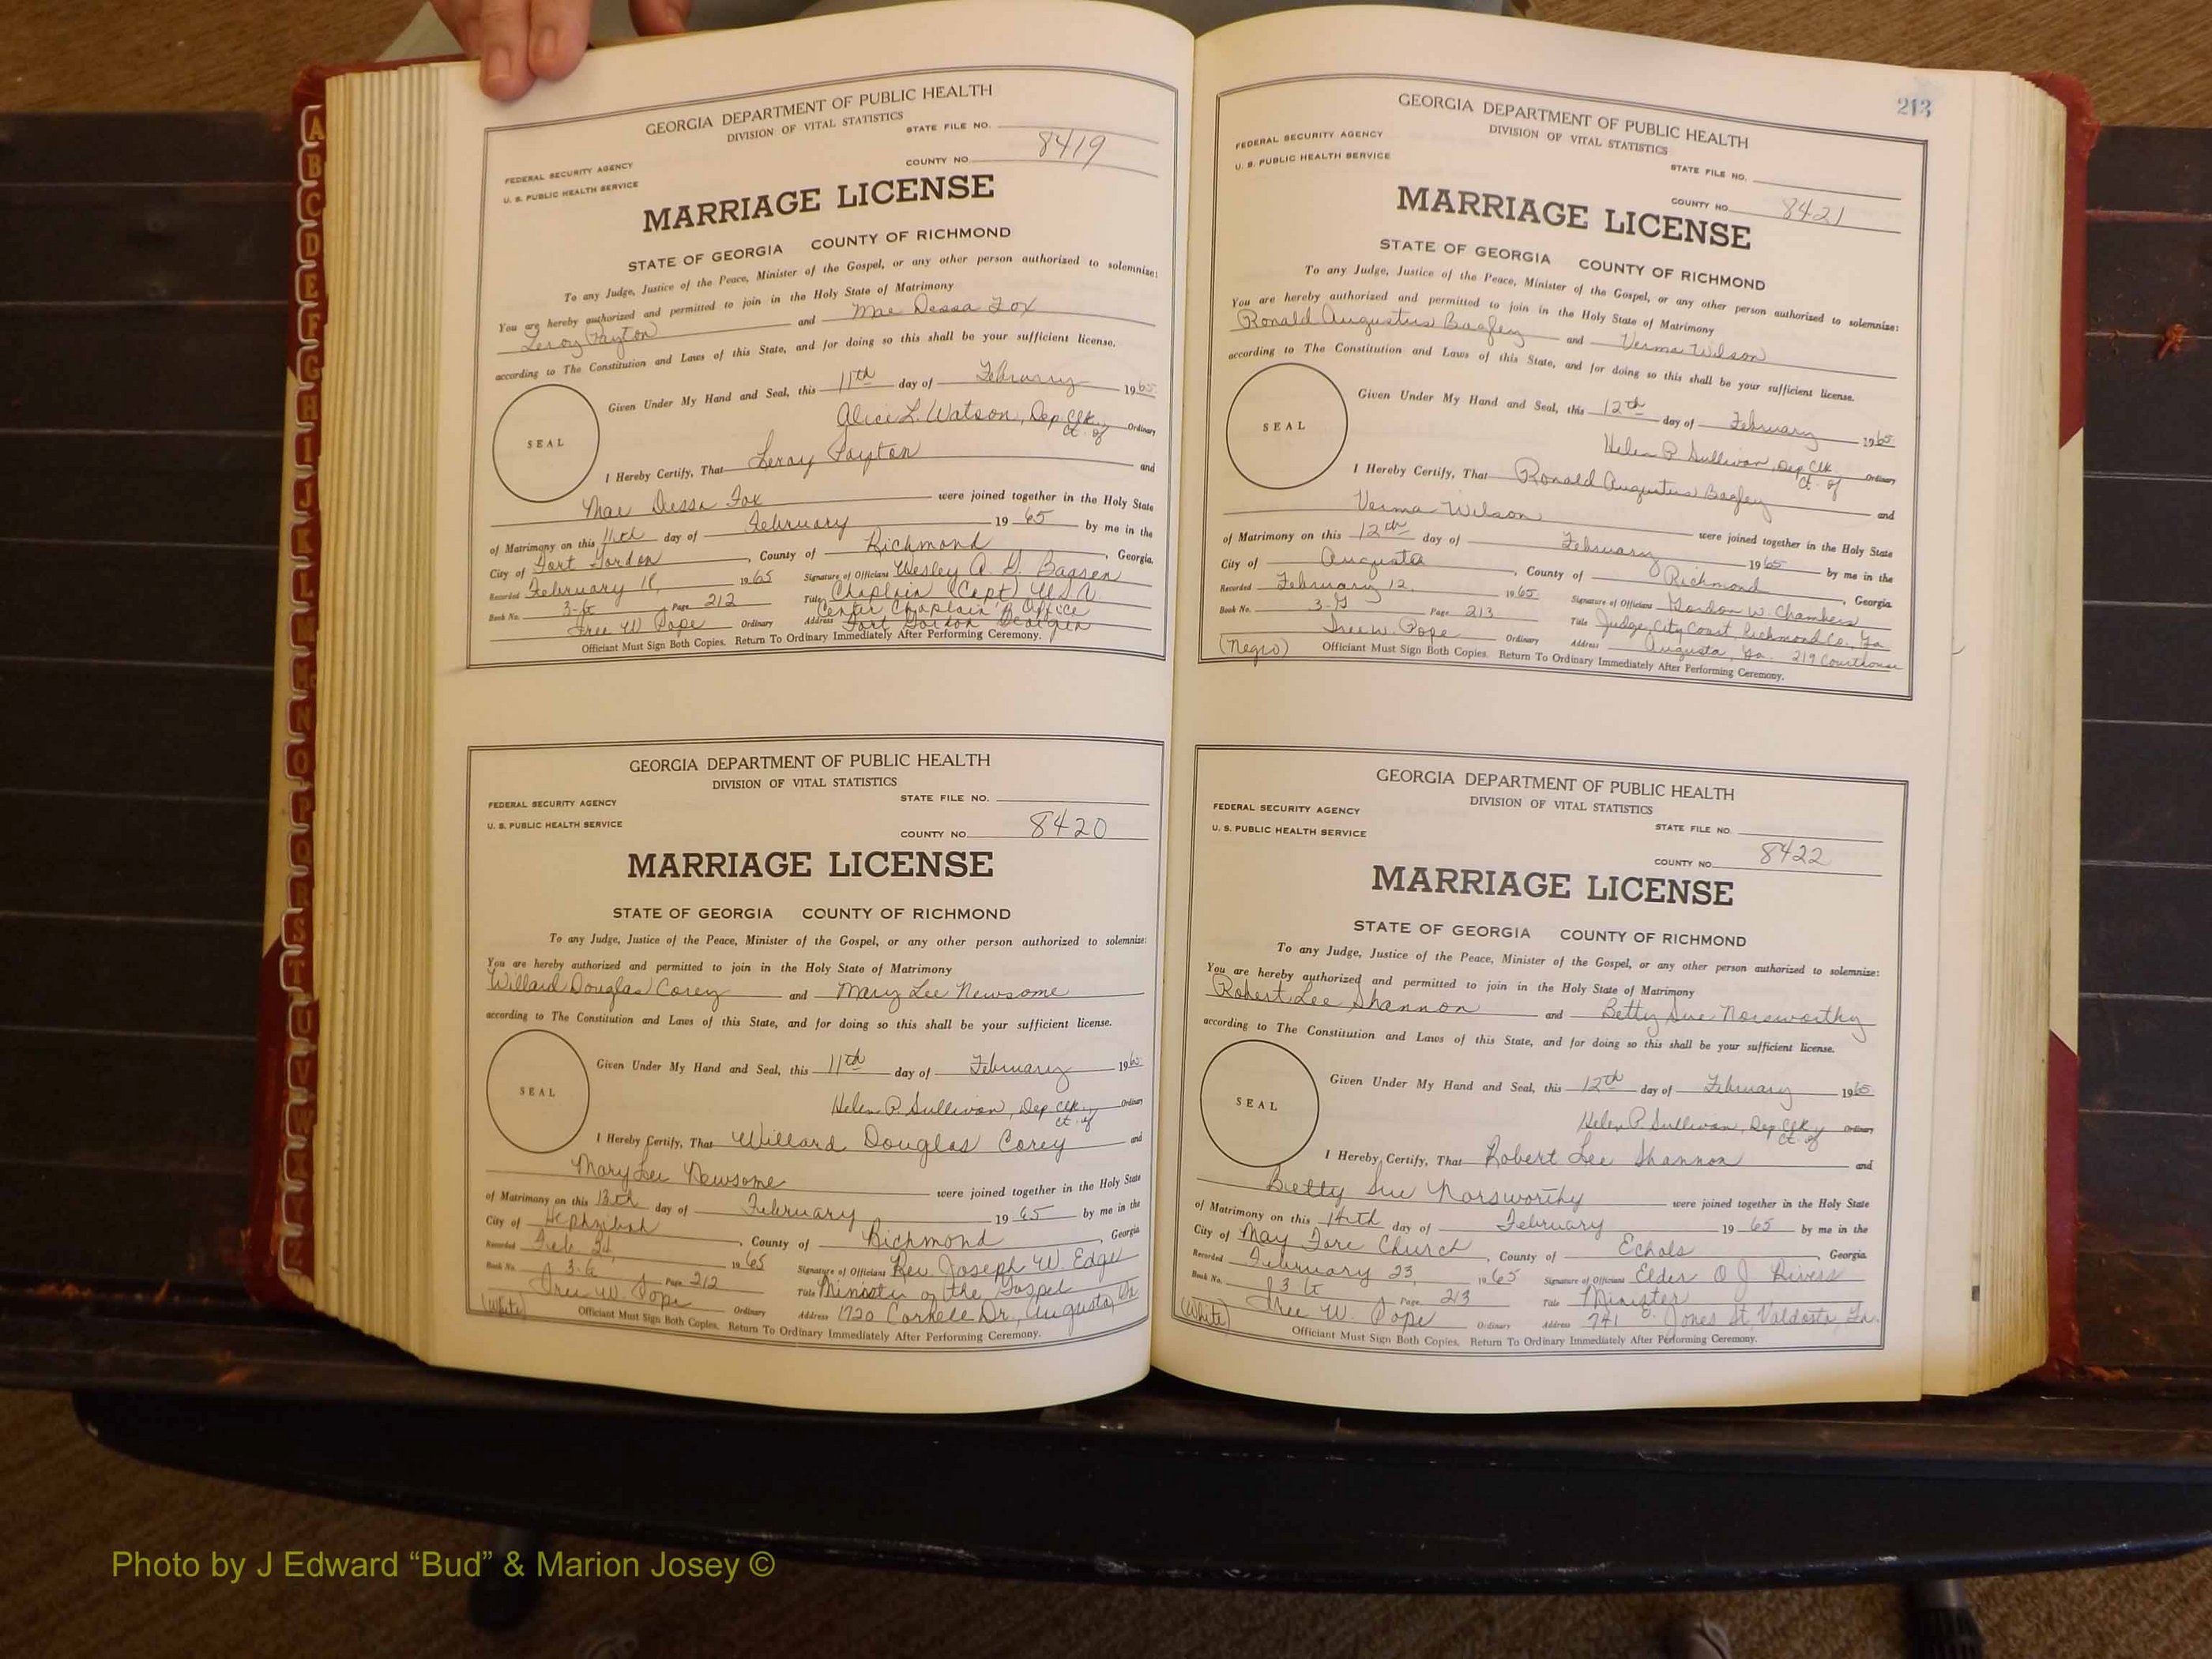 GEORGIA DEPARTMENT OF PUBLIC HEALTH
DIVISION OF VITAL STATISTICS
STATE FILE NO.
FEDERAL SECURITY AGENCY
COUNTY NO. 8419
U. S. PUBLIC HEALTH SERVICE
MARRIAGE LICENSE
STATE OF GEORGIA COUNTY OF RICHMOND
To any Judge, Justice of the Peace, Minister of the Gospel, or any other person authorized to solemnize:
You are hereby authorized and permitted to join in the Holy State of Matrimony
Leroy Payton and Mae Dessa Fox
according to The Constitution and Laws of this State, and for doing so this shall be your sufficient license.
Given Under My Hand and Seal, this 11th day of February 1965
SEAL
Alice L. Watson, Dep Clk. Ordinary
ct. of
I Hereby Certify, That Leroy Payton and
Mae Dessa Fox were joined together in the Holy State
of Matrimony on this 11th day of February 19 65 by me in the
City of Fort Gordon, County of Richmond, Georgia.
Recorded February 18, 1965 Signature of Officiant Wesley A. G. Baasen
Book No. 3-G Page 212 Title Chaplain (Capt) U.S.A.
Center Chaplain's Office
Tree W. Pope Ordinary Address Fort Gordon Georgia
Officiant Must Sign Both Copies. Return To Ordinary Immediately After Performing Ceremony.
GEORGIA DEPARTMENT OF PUBLIC HEALTH
DIVISION OF VITAL STATISTICS
STATE FILE NO.
FEDERAL SECURITY AGENCY
U. S. PUBLIC HEALTH SERVICE
COUNTY NO. 8420
MARRIAGE LICENSE
STATE OF GEORGIA COUNTY OF RICHMOND
To any Judge, Justice of the Peace, Minister of the Gospel, or any other person authorized to solemnize:
You are hereby authorized and permitted to join in the Holy State of Matrimony
Willard Douglas Corey and Mary Lee Newsome
according to The Constitution and Laws of this State, and for doing so this shall be your sufficient license.
Given Under My Hand and Seal, this 11th day of February 1965
SEAL
Helen P. Sullivan, Dep Clk. Ordinary
ct. of
I Hereby Certify, That Willard Douglas Corey and
Mary Lee Newsome were joined together in the Holy State
of Matrimony on this 13th day of February 19 65 by me in the
City of Hephzibah, County of Richmond, Georgia
Recorded Feb. 24, 1965 Signature of Officiant Rev. Joseph W. Edge
Book No. 3-G Page 212 Title Minister of the Gospel
Tree W. Pope Ordinary Address 1720 Dr., Augusta, Ga
(White) Officiant Must Sign Both Copies. Return To Ordinary Immediately After Performing Ceremony.
213
GEORGIA DEPARTMENT OF PUBLIC HEALTH
DIVISION OF VITAL STATISTICS
FEDERAL SECURITY AGENCY
U. S. PUBLIC HEALTH SERVICE
STATE FILE NO.
COUNTY NO. 8421
MARRIAGE LICENSE
STATE OF GEORGIA COUNTY OF RICHMOND
To any Judge, Justice of the Peace, Minister of the Gospel, or any other person authorized to solemnize:
You are hereby authorized and permitted to join in the Holy State of Matrimony
Ronald Augustus Bagley and Verma Wilson
according to The Constitution and Laws of this State, and for doing so this shall be your sufficient license.
Given Under My Hand and Seal, this 12th day of February 1965
SEAL
Helen P Sullivan, Dep Clk. Ordinary
ct. of
I Hereby Certify, That Ronald Augustus Bagley and
Verma Wilson were joined together in the Holy State
of Matrimony on this 12th day of February 1965 by me in the
City of Augusta, County of Richmond, Georgia
Recorded February 12, 1965 Signature of Officiant Gordon W. Chambers
Book No. 3-G Page 213 Title Judge, City Court, Richmond Co., Ga
Tree W. Pope Ordinary Address Augusta, Ga. 219 Courthouse
(Negro) Officiant Must Sign Both Copies. Return To Ordinary Immediately After Performing Ceremony.
GEORGIA DEPARTMENT OF PUBLIC HEALTH
DIVISION OF VITAL STATISTICS
FEDERAL SECURITY AGENCY
STATE FILE NO.
U. S. PUBLIC HEALTH SERVICE
COUNTY NO. 8422
MARRIAGE LICENSE
STATE OF GEORGIA COUNTY OF RICHMOND
To any Judge, Justice of the Peace, Minister of the Gospel, or any other person authorized to solemnize:
You are hereby authorized and permitted to join in the Holy State of Matrimony
Robert Lee Shannon and Betty Sue Norsworthy
according to The Constitution and Laws of this State, and for doing so this shall be your sufficient license.
Given Under My Hand and Seal, this 12th day of February 1965
SEAL
Helen P. Sullivan, Dep Clk Ordinary
ct. of
I Hereby Certify, That Robert Lee Shannon and
Betty Sue Norsworthy were joined together in the Holy State
of Matrimony on this 14th day of February 19 65 by me in the
City of May Church, County of Echols, Georgia
Recorded February 23, 1965 Signature of Officiant Elder O J Rivers
Book No. 3 G Page 213 Title Minister
Tree W. Pope Ordinary Address 741 Jones St, Valdosta, Ga.
(White) Officiant Must Sign Both Copies. Return To Ordinary Immediately After Performing Ceremony.
A
B
C
D
E
F
G
H
I
J
K
L
M
Mc
N
O
P
Q
R
S
T
U
V
W
X
Y
Z
Photo by J Edward “Bud” & Marion Josey ©